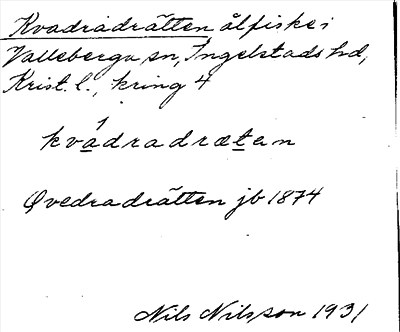 Kvadradrätten, ålfiske i
Valleberga sn, Ingelstads hd,
Krist. l., kring 4
kvadradrætæn
Qvedradrätten jb 1874
Nils Nilsson 1931